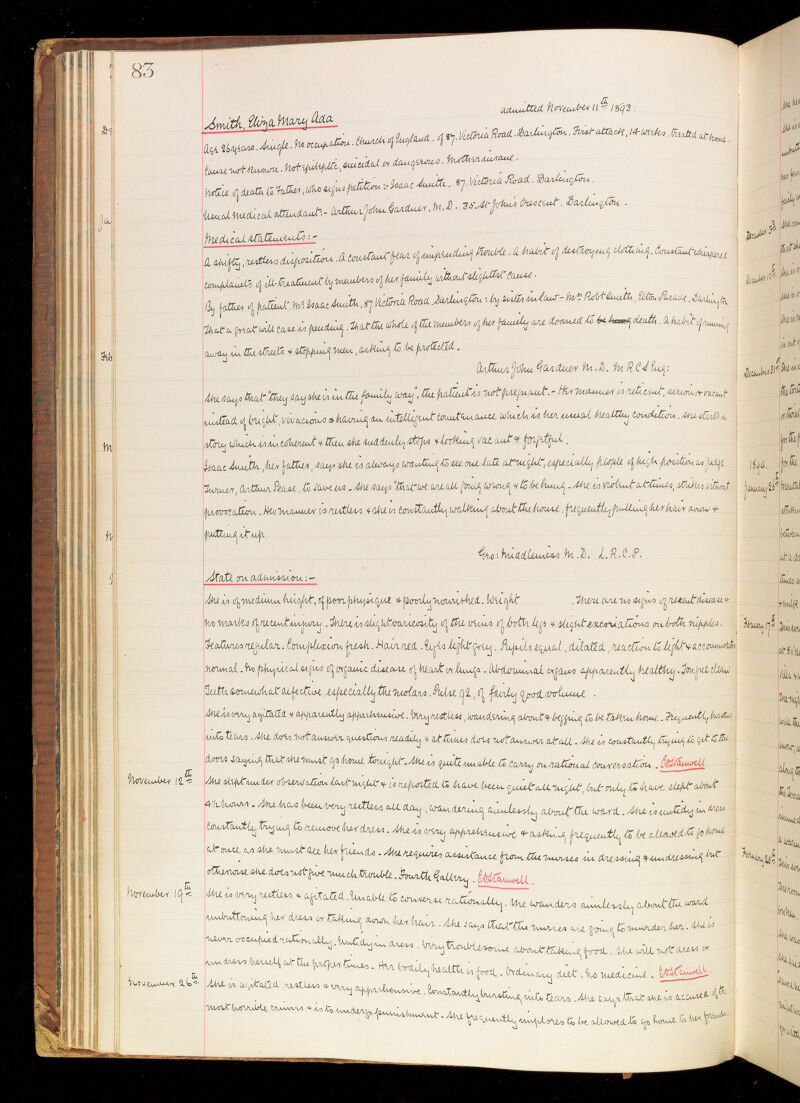 83
admitted November 11th 1893.
Smith, Eliza Mary Ada
Age 26 years. Single. No occupation. Church of England. of 87. Victoria Road. Darlington. First attack, 14 weeks. Treated at home.
Cause not known. Not epileptic, suicidal or dangerous. Mother insane.
Notice of death to Father, who signs petition :- Isaac Smith. 87. Victoria Road. Darlington.
Usual medical attendant:- Arthur John Gardner, M.D. 35. St John's Crescent. Darlington.
Medical statements:-
A shifty, restless disposition. A constant fear of impending trouble. A habit of destroying clothing. Constant whispered
complaints of ill-treatment by members of her family without slightest cause.
By father of patient Mr Isaac Smith, 87 Victoria Road. Darlington: by sister in law - Mrs Robt Smith, Elton Parade, Darlington
That a great will case is pending. That the whole of the members of her family are doomed to be hung death. A habit of running
away in the streets & stopping men, asking to be protected.
Arthur John Gardner M.D. M.R.C.S Eng:
She says that "they say she is in the family way", the patient is not pregnant. - Her manner is reticent, serious & vacant
instead of bright, vivacious & having an intelligent countenance which is her usual healthy condition. She starts a
story which is incoherent & then she suddenly stops & looking vacant & forgetful.
Isaac Smith, her father, says she is always wanting to see one late at night, especially people of high position as Judge
Turner, Arthur Pease, to save us. She says "that we are all going wrong & to be hung. She is violent at times, strikes without
provocation. Her manner is restless & she is constantly walking about the house, frequently pulling her hair down &
putting it up
Geo: Middlemiss M.D. L.R.C.P.
State on admission:-
She is of medium height, of poor physique & poorly nourished. Weight . There are no signs of recent disease &
no marks of recent injury. There is slight varicosity of the veins of both legs & slight excoriations on both nipples.
Features regular. Complexion fresh. Hair red. Eyes light grey. Pupils equal, dilated, reaction to light & accommodation
normal. No physical signs of organic disease of heart or lungs. Abdominal organs apparently healthy. Tongue clean
Teeth somewhat defective, especially the molars. Pulse 92, of fairly good volume.
She is very agitated & apparently apprehensive. Very restless, wandering about & begging to be taken home. Frequently bursting
into tears. She does not answer questions readily & at times does not answer at all. She is constantly trying to get to the
doors saying that she must go home tonight. She is quite unable to carry on rational conversation.
November 12th She slept under observation last night & is reported to have been quiet all night, but only to have slept about
4½ hours. She has been very restless all day, wandering aimlessly about the ward. She is untidy in dress
constantly trying to remove her dress. She is very apprehensive & asking frequently to be allowed to go home
at once as she must see her friends. She requires assistance from the nurses in dressing & undressing but
otherwise she does not give much trouble. Fourth Gallery.
November 19th She is very restless & agitated. Unable to converse rationally. She wanders aimlessly about the ward
unbuttoning her dress or taking down her hair. She says that the nurses are going to murder her. She is
never occupied rationally. Untidy in dress. Very troublesome about taking food. She will not dress or
undress herself at the proper times. Her bodily health is good. Ordinary diet. No medicine.
November 26th She is agitated, restless & very apprehensive. Constantly bursting into tears. She says that she is accused of the
most horrible crimes & is to undergo punishment. She frequently implores to be allowed to go home to her friends.